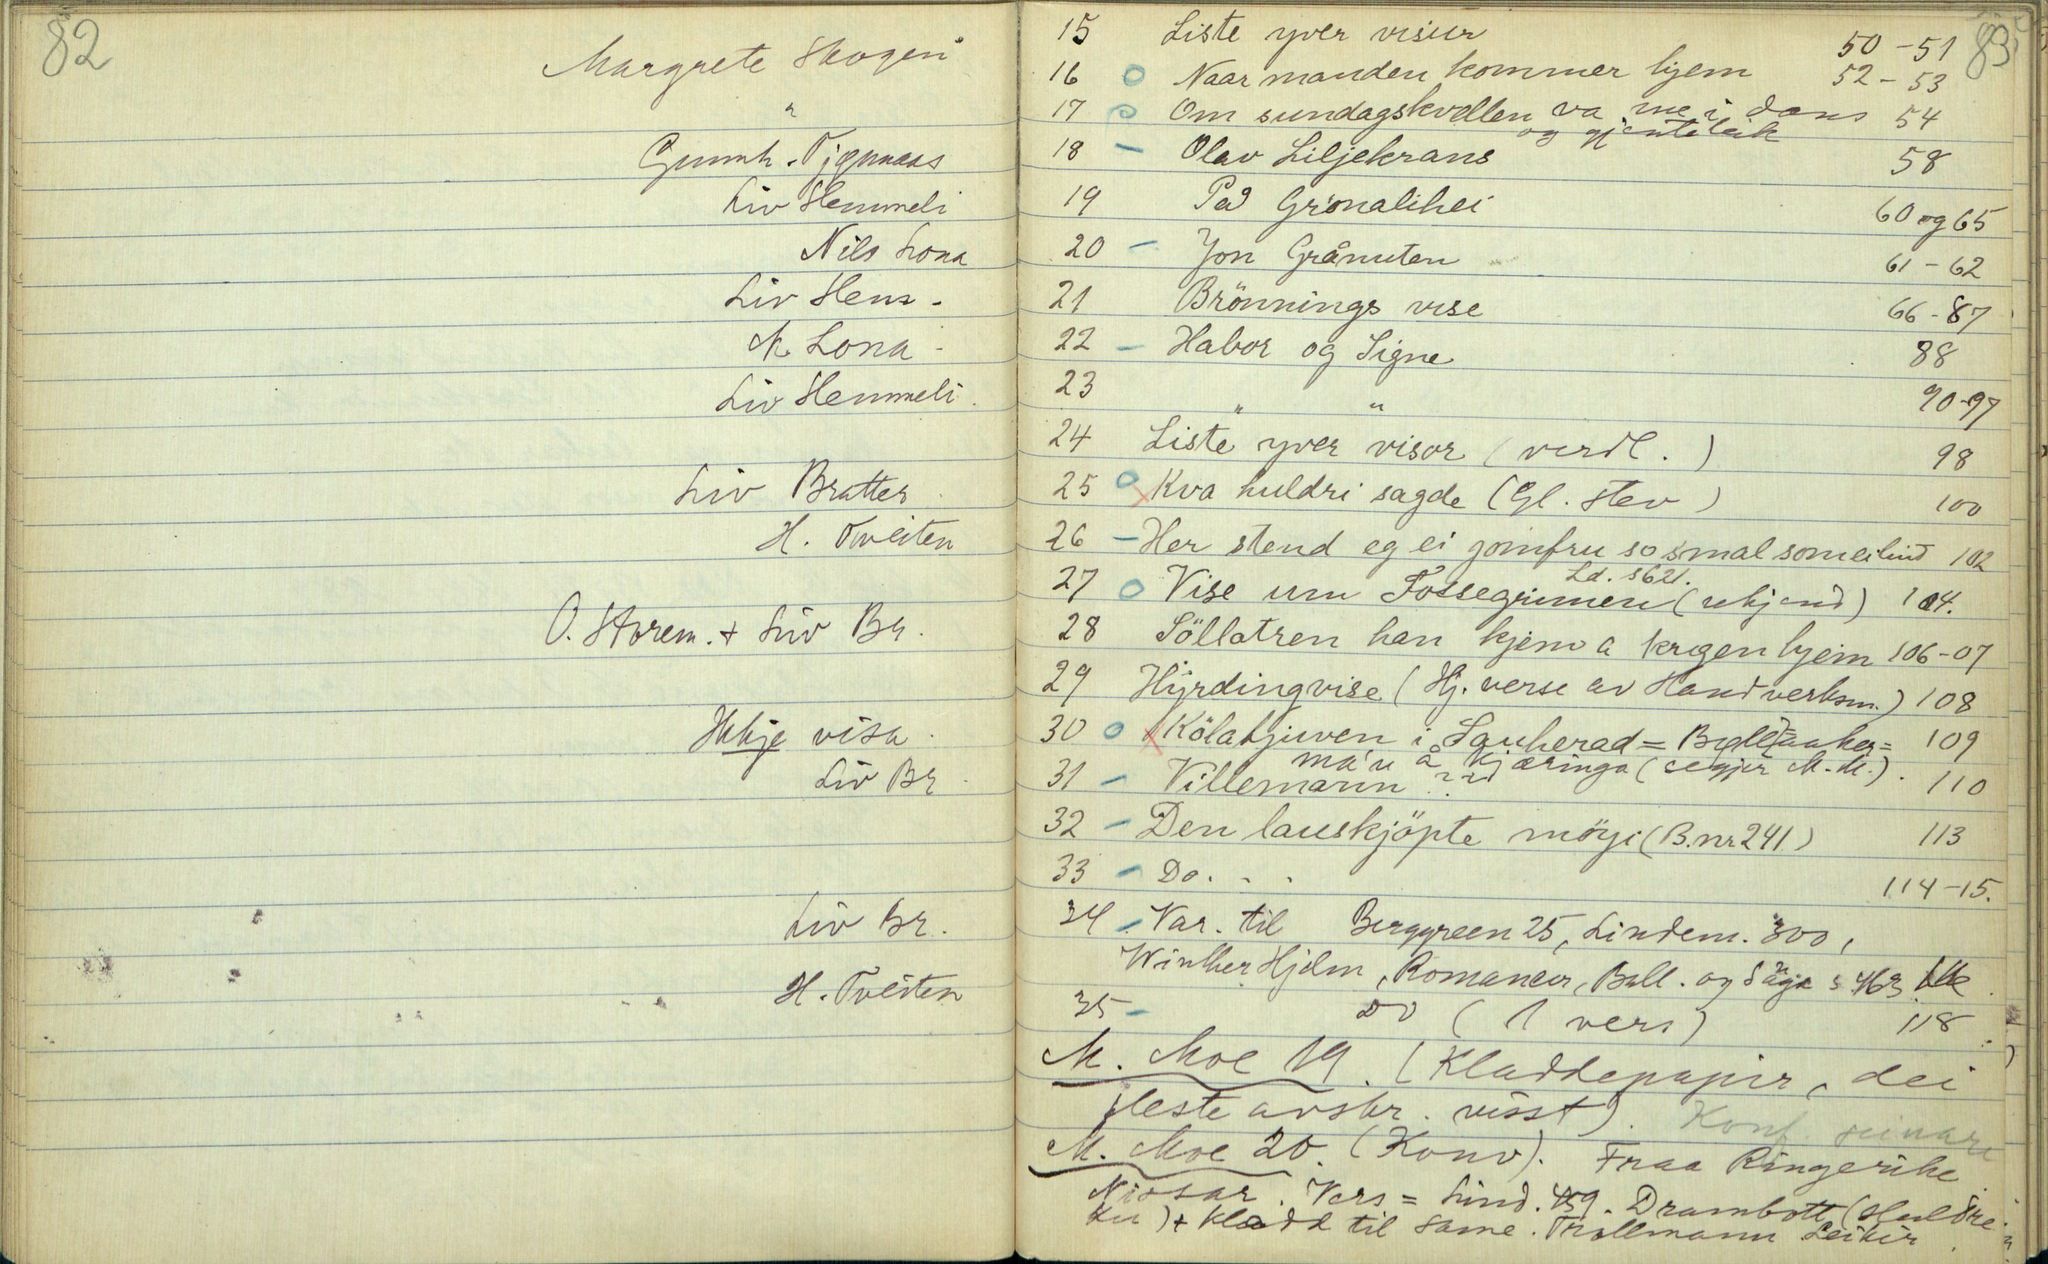 82
Margrete Skogen
"
Gunnh. Tjønnaas
Liv Hemmeli
Nils Lona
Liv Hem -
N. Lona -
Liv Hemmeli
Liv Bratter.
H. Tveiten
O. Storem. + Liv Br.
Hekje visa.
Liv Br.
Liv Br.
H. Tveiten
83
15 Liste yver visur 50-51
16 o Naar manden kommer hjem 52-53
17 o Om sundagskvellen va me i dans 54
og gjenteleik
18 - Olav Liljekrans 58
19 Paa Grönalihei 60 og 65
20 - Jon Grånuten 61-62
21 Brönnings vise 66-87
22 - Habor og Signe 88
23 " " 90-97
24 Liste yver visor (verdl.) 98
25 o x Kva huldri sagde (Gl. stev) 100
26 - Her stend eg ei jomfru so smal som ei lind 102
Ld. 1621.
27 o Vise um Fossegrimen (ukjend) 104.
28 Söllatren han kjem a krigen hjem 106-07
29 Hyrdingvise (Hj. verse av Handverksm.) 108
30 o x Kölabjuven i Sauherad = 109
ma'u å kjæringa (segjer M. M.).
31 - Villemann 110
32 - Den lauskjöpte möyi (B. nr 241) 113
33 - Do. - - 114-15.
34 - Var. til Berggreen 25, Lindem. 300,
Winther Hjelm, Romancer, Ball. og Sagn s 463
35 - Do (1 vers) 118
M. Moe 19. (Kladdepapir, dei
fleste avskr. visst). Konf.
M. Moe 20. (Konv). Fraa Ringerike
Nissar. Vers = Lind. 459. Drambott (Huldre-
ku) + kladd til same. Trollmann Leikir